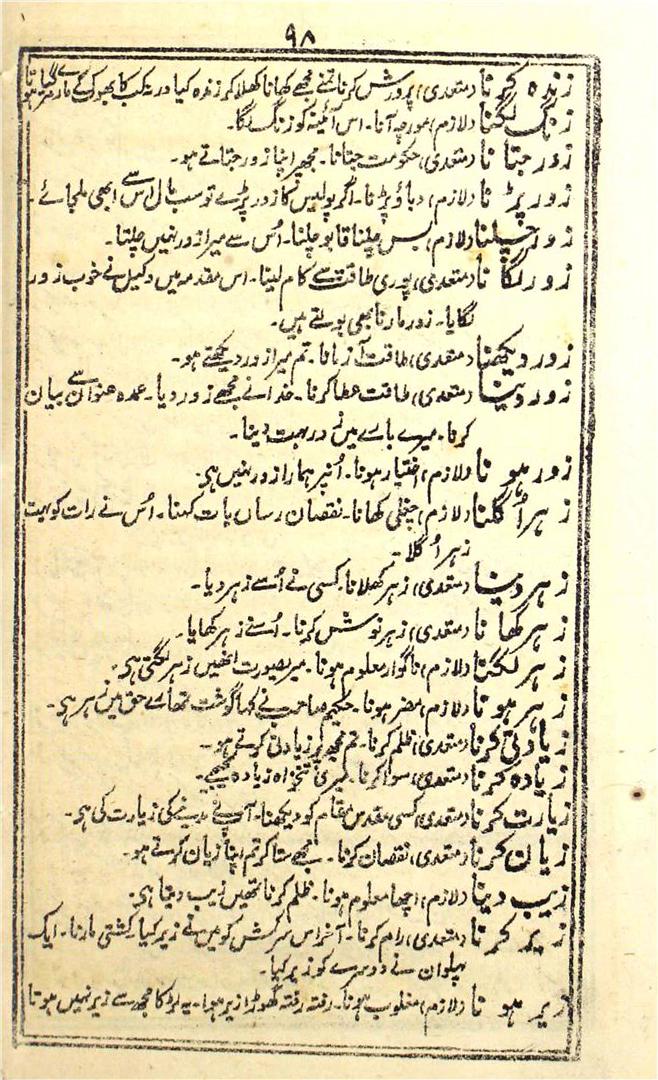 ۹۸
زندہ کرنا (متعدی) پرورش کرنا تمنے مجھے کھانا کھلا کر زندہ کیا ورنہ کب کا بھوک کے مارے مر گیا ہوتا
زنگ لگنا (لازم) مورچہ آنا۔ اس آئینہ کو زنگ لگا۔
زور جتانا (متعدی) حکومت جتانا۔ مجھپر اپنا زور جتاتے ہو۔
زور پڑنا (لازم) دباؤ پڑنا۔ اگر پولیس کا زور پڑے تو سب مال اس سے ابھی ملجائے۔
زور چلنا (لازم) بس چلنا قابو چلنا۔ اُس سے میرا زور نہیں چلتا۔
زور لگانا (متعدی) پوری طاقت سے کام لینا۔ اس مقدمہ میں وکیل نے خوب زور
لگایا۔ زور مارنا بھی بولتے ہیں۔
زور دیکھنا (متعدی) طاقت آزمانا۔ تم میرا زور دیکھتے ہو۔
زور دینا (متعدی) طاقت عطا کرنا۔ خدا نے مجھے زور دیا۔ عمدہ عنوان سے بیان
کرنا۔ میرے بارے میں زور بہت دینا۔
زور ہونا (لازم) اختیار ہونا۔ اُنپر ہمارا زور نہیں ہی۔
زہر اُگلنا (لازم) چغلی کھانا۔ نقصان رساں بات کہنا۔ اُس نے رات کو بہت
زہر اُگلا۔
زہر دینا (متعدی) زہر کھلانا۔ کسی نے اُسے زہر دیا۔
زہر کھانا (متعدی) زہر نوش کرنا۔ اُسنے زہر کھایا۔
زہر لگنا (لازم) ناگوار معلوم ہونا۔ میری صورت انھیں زہر لگتی ہی۔
زہر ہونا (لازم) مضر ہونا۔ حکیم صاحب نے کہا گوشت تمھارے حق میں زہر ہی۔
زیادتی کرنا (متعدی) ظلم کرنا۔ تم مجھ پر زیادتی کرتے ہو۔
زیادہ کرنا (متعدی) سوا کرنا۔ میری تنخواہ زیادہ کیجیے۔
زیارت کرنا (متعدی) کسی مقدس مقام کو دیکھنا۔ آپ نے مدینے کی زیارت کی ہی۔
زیان کرنا (متعدی) نقصان کرنا۔ مجھے ستا کر تم اپنا زیان کرتے ہو۔
زیب دینا (لازم) اچھا معلوم ہونا۔ ظلم کرنا تمھیں زیب دیتا ہی۔
زیر کرنا (متعدی) رام کرنا۔ آخر اس سرکش کو میں نے زیر کیا۔ کشتی مارنا۔ ایک
پہلوان نے دوسرے کو زیر کیا۔
زیر ہونا (لازم) مغلوب ہونا۔ رفتہ رفتہ گھوڑا زیر ہوا۔ یہ لڑکا مجھ سے زیر نہیں ہوتا